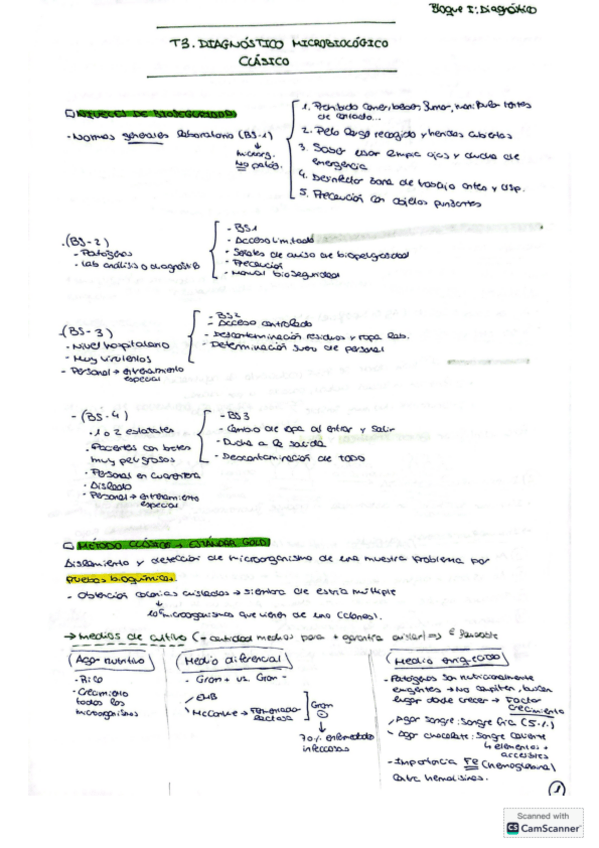 Bloque I: Diagnóstico
T3. DIAGNÓSTICO MICROBIOLÓGICO
CLÁSICO
NIVELES DE BIOSEGURIDAD
- Normas generales laboratorio (BS-1)
microrg.
No patóg.
1. Prohibido comer, beber, fumar, manipular lentes
de contacto...
2. Pelo largo recogido y heridas cubiertas
3. Saber usar limpia ojos y ducha de
emergencia
4. Desinfectar zona de trabajo antes y dsp.
5. Precaución con objetos punzantes
(BS-2)
- Patógenos
- Lab análisis o diagnóstico
- BS1
- Acceso limitado
- Señales de aviso de biopeligrosidad
- Precaución
- Manual bioseguridad
(BS-3)
- Nivel hospitalario
- Muy virulentos
- Personal → entrenamiento
especial
- BS2
- Acceso controlado
- Descontaminación residuos y ropa lab.
- Determinación suero de personal
- (BS-4)
- 1 o 2 estatales
- Pacientes con
muy peligrosos
- Personal en cuarentena
- Aislado
- Personal → entrenamiento
especial
- BS3
- Cambio de ropa al entrar y salir
- Ducha a la salida
- Descontaminación de TODO
MÉTODO CLÁSICO → ESTÁNDAR GOLD
Aislamiento y detección de microorganismo de una muestra problema por
pruebas bioquímicas.
- Obtención colonias aisladas → siembra de estría múltiple
microorganismos que vienen de uno (clones).
→ Medios de cultivo (- cantidad medios para + garantía
Agar nutritivo
- Rico
- Crecimiento
todos los
microorganismos
Medio diferencial
- Gram + vs. Gram -
EMB
McConkey → Fermentador
lactosa
Gram
-
70% enfermedades
infecciosas
Medio enriquecido
- Patógenos son nutricionalmente
exigentes → No compiten, buscan
lugar donde crecer → Factor
crecimiento
Agar sangre: sangre fría (5%)
Agar chocolate: Sangre caliente
elementos +
accesibles
- Importancia Fe (hemoglobina)
hemolisinas.
1
Scanned with
CS CamScanner